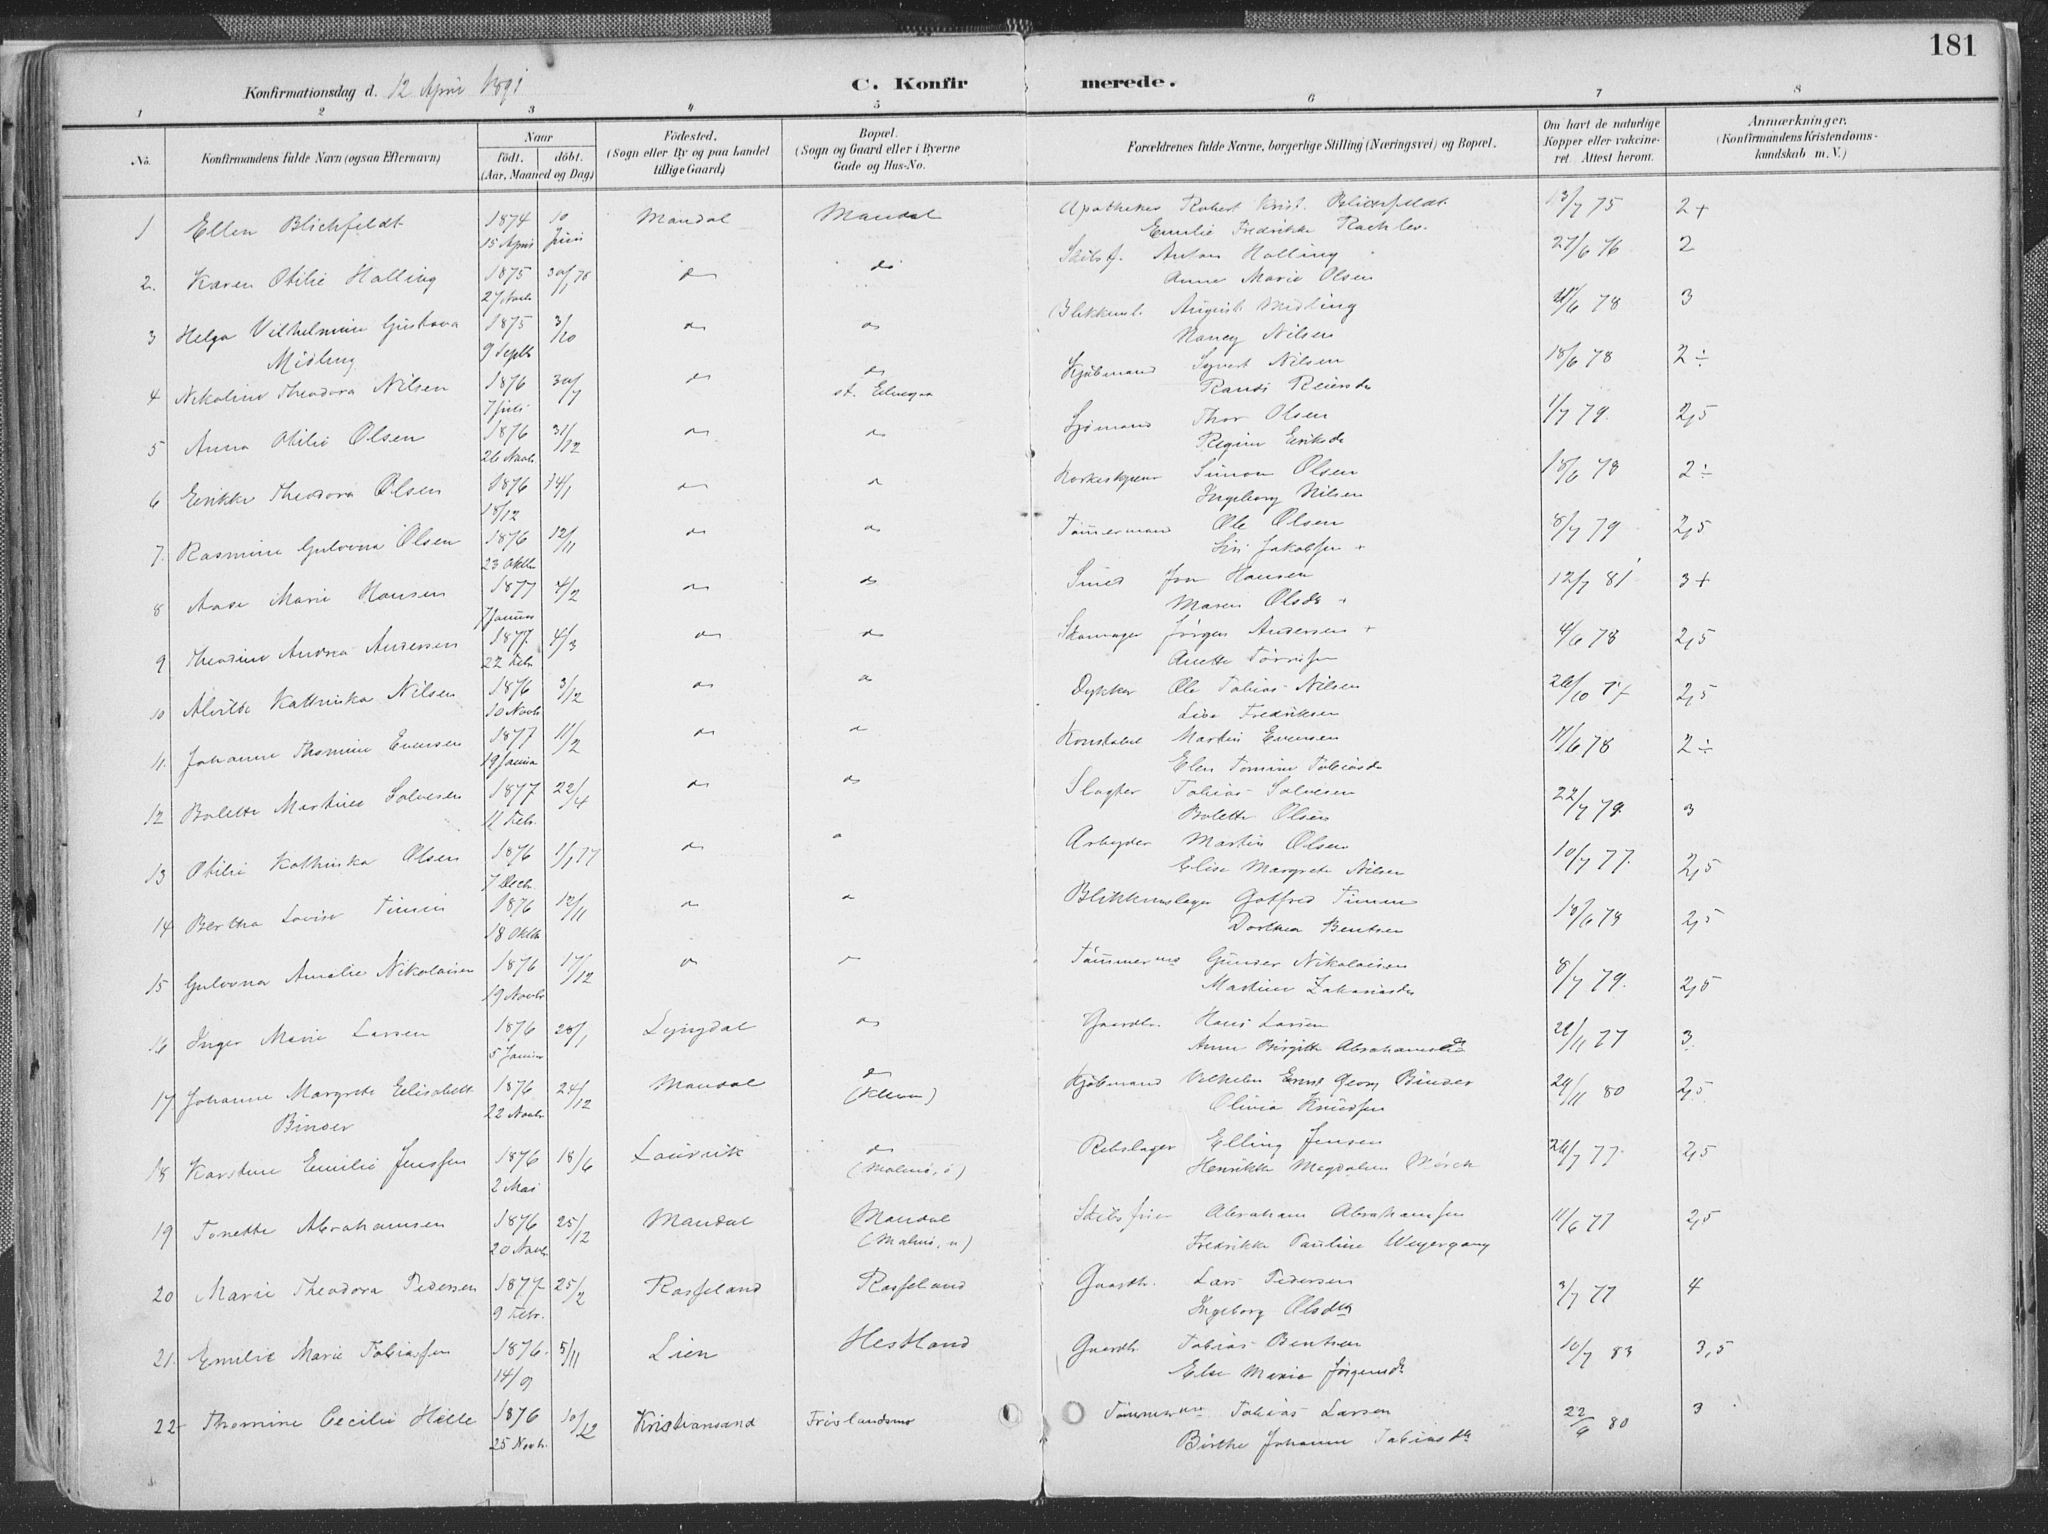 181
Konfirmationsdag d. 12 April 1891
C. Konfirmerede.
1 2 3 4 5 6 7 8
No. Konfirmandens fulde Navn (ogsaa Efternavn) Naar født. døbt. (Aar, Maaned og Dag) Fødested. (Sogn eller By og paa Landet tillige Gaard) Bopæl. (Sogn og Gaard eller i Byerne Gade og Hus-No. Forældrenes fulde Navne, borgerlige Stilling (Næringsvei) og Bopæl. Om havt de naturlige Kopper eller vakcineret. Attest herom. Anmærkninger. (Konfirmandens Kristendomskundskab m. V.)
1 Ellen Blichfeldt 1874 10 Mandal Mandal Apotheker Robert Krist. Blichfeldt 13/7 75 2+
15 April Juni Emilie Fredrikke
2. Karen Otilie Holling 1875 30/1 76 do do Skibsf. Anton Holling 27/6 76 2
27 Novb. Anne Marie Olsen
3 Helga Vilhelmine Gustava 1875 3/10 do do Blikkensl. August Midling 3
Midling 9 Septb Nancy Nilsen
4 Nikoline Theodora Nilsen 1876 30/7 do do Kjøbmand Syvert Nilsen 18/6 78 2÷
7 Juli st. Elvegaa Randi Reiersdr
5 Anna Otilie Olsen 1876 31/12 do do Sjømand Thor Olsen 1/7 79. 2,5
26 Novb. Regine Eriksdr
6 Erikke Theodora Olsen 1876 14/1 do do Simon Olsen 18/6 78 2÷
18/12 Ingeborg Nilsen
7. Rasmine Gulovna Olsen 1876 12/11 do do Tømmermand Ole Olsen 8/7 79 2,5
23 Oktbr Siri Jakobsen +
8 Aase Marie Hansen 1877 4/2 do do Smed Hansen 12/7 81 3+
7 Januar Maren Olsdr +
9 Theodine Andrea Andersen 1877. 4/3 do do Skomager Jørgen Andersen + 4/6 78 2,5
22 Febr. Anette Tørrisen
10 Alvilde Kathinka Nilsen 1876 3/12 do do Dykker Ole Tobias Nilsen 2,5
10 Novbr Lisa Fredriksen
11. Johanne Thomine Evensen 1877 11/2 do do Konstabel Martin Evensen 11/6 78 2÷
19 Janua Elen Tomine Tobiasdr
12 Bolette Martine Salvesen 1877 22/4 do do Slagter Tobias Salvesen 22/7 79. 3
11 Febr. Bolette Olsen
13 Otilie Kathinka Olsen 1876 1/1 77 do do Arbeyder Martin Olsen 10/7 77. 2,5
7 Decbr. Elise Margrete Nilsen
14 Bertha Lovise Timin 1876 12/11 do do Blikkenslager Gotfred Timen 18/6 78 2,5
18 Oktbr Dorthea Bentsen
15 Gulovna Amalie Nikolaisen 1876 17/12 do do Tømmerma Gunder Nikolaisen 8/7 79. 2,5
19 Novbr Martine Zakariasdr
16 Inger Marie Larsen 1876 28/1 Lyngdal do Gaardbr. Hans Larsen 3.
5 Januar Anne Birgitte Abrahamsdr
17 Johanne Margrete Elisabeth 1876 24/12 Mandal do Kjøbmand Vilhelm Ernst Georg Binder 29/11 80 2,5
Binder 22 Novbr (Kleven) Olivia Knudsen
18 Karstine Emilie Jenssen 1876 18/6 Laurvik do Rebslager Elling Jensen 2,5
2 Mai (Malmø, ø) Henrikke Magdalene
19 Tonette Abrahamsen 1876 25/12 Mandal Mandal Skibsfører Abraham Abrahamsen 11/6 77 2,5
20 Novbr (Malmø, n) Fredrikke Pauline Weyergang
20 Marie Theodora Pedersen 1877. 25/2 Rosseland Rosseland Gaardbr. Lars Pedersen 3/7 77 4
9 Febr. Ingeborg Olsdtr
21. Emilie Marie Tobiassen 1876. 5/11 Lien Hestland Gaardbr Tobias Bentsen 10/7 83 3,5
14/9 Else Marie Jørgensdr
22 Thomine Cecilie Hille 1876 10/12 Kristiansand Frøslandsmo Tømmerma Tobias Larsen 22/6 80 3
25 Novbr. Birthe Johanne Tobiasdtr